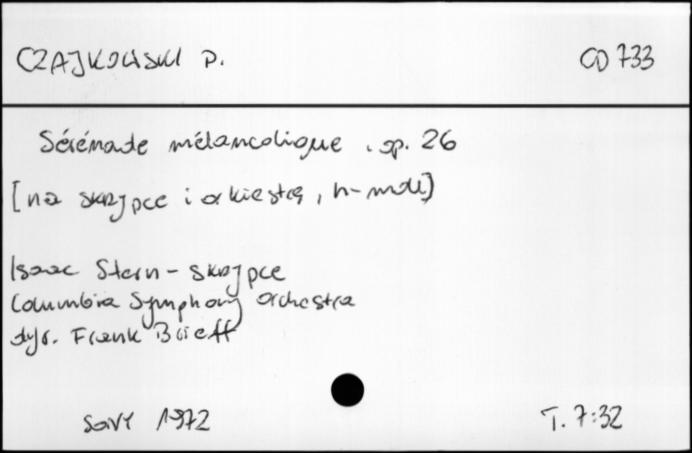 CZAJKOWSKI P. CD 733
Sérénade mélancolique, op. 26
[na skrzypce i orkiestrę, h-moll]
Isaac Stern - skrzypce
Columbia Symphony Orchestra
dyr. Frank Brieff
SONY 1972 T. 7:32